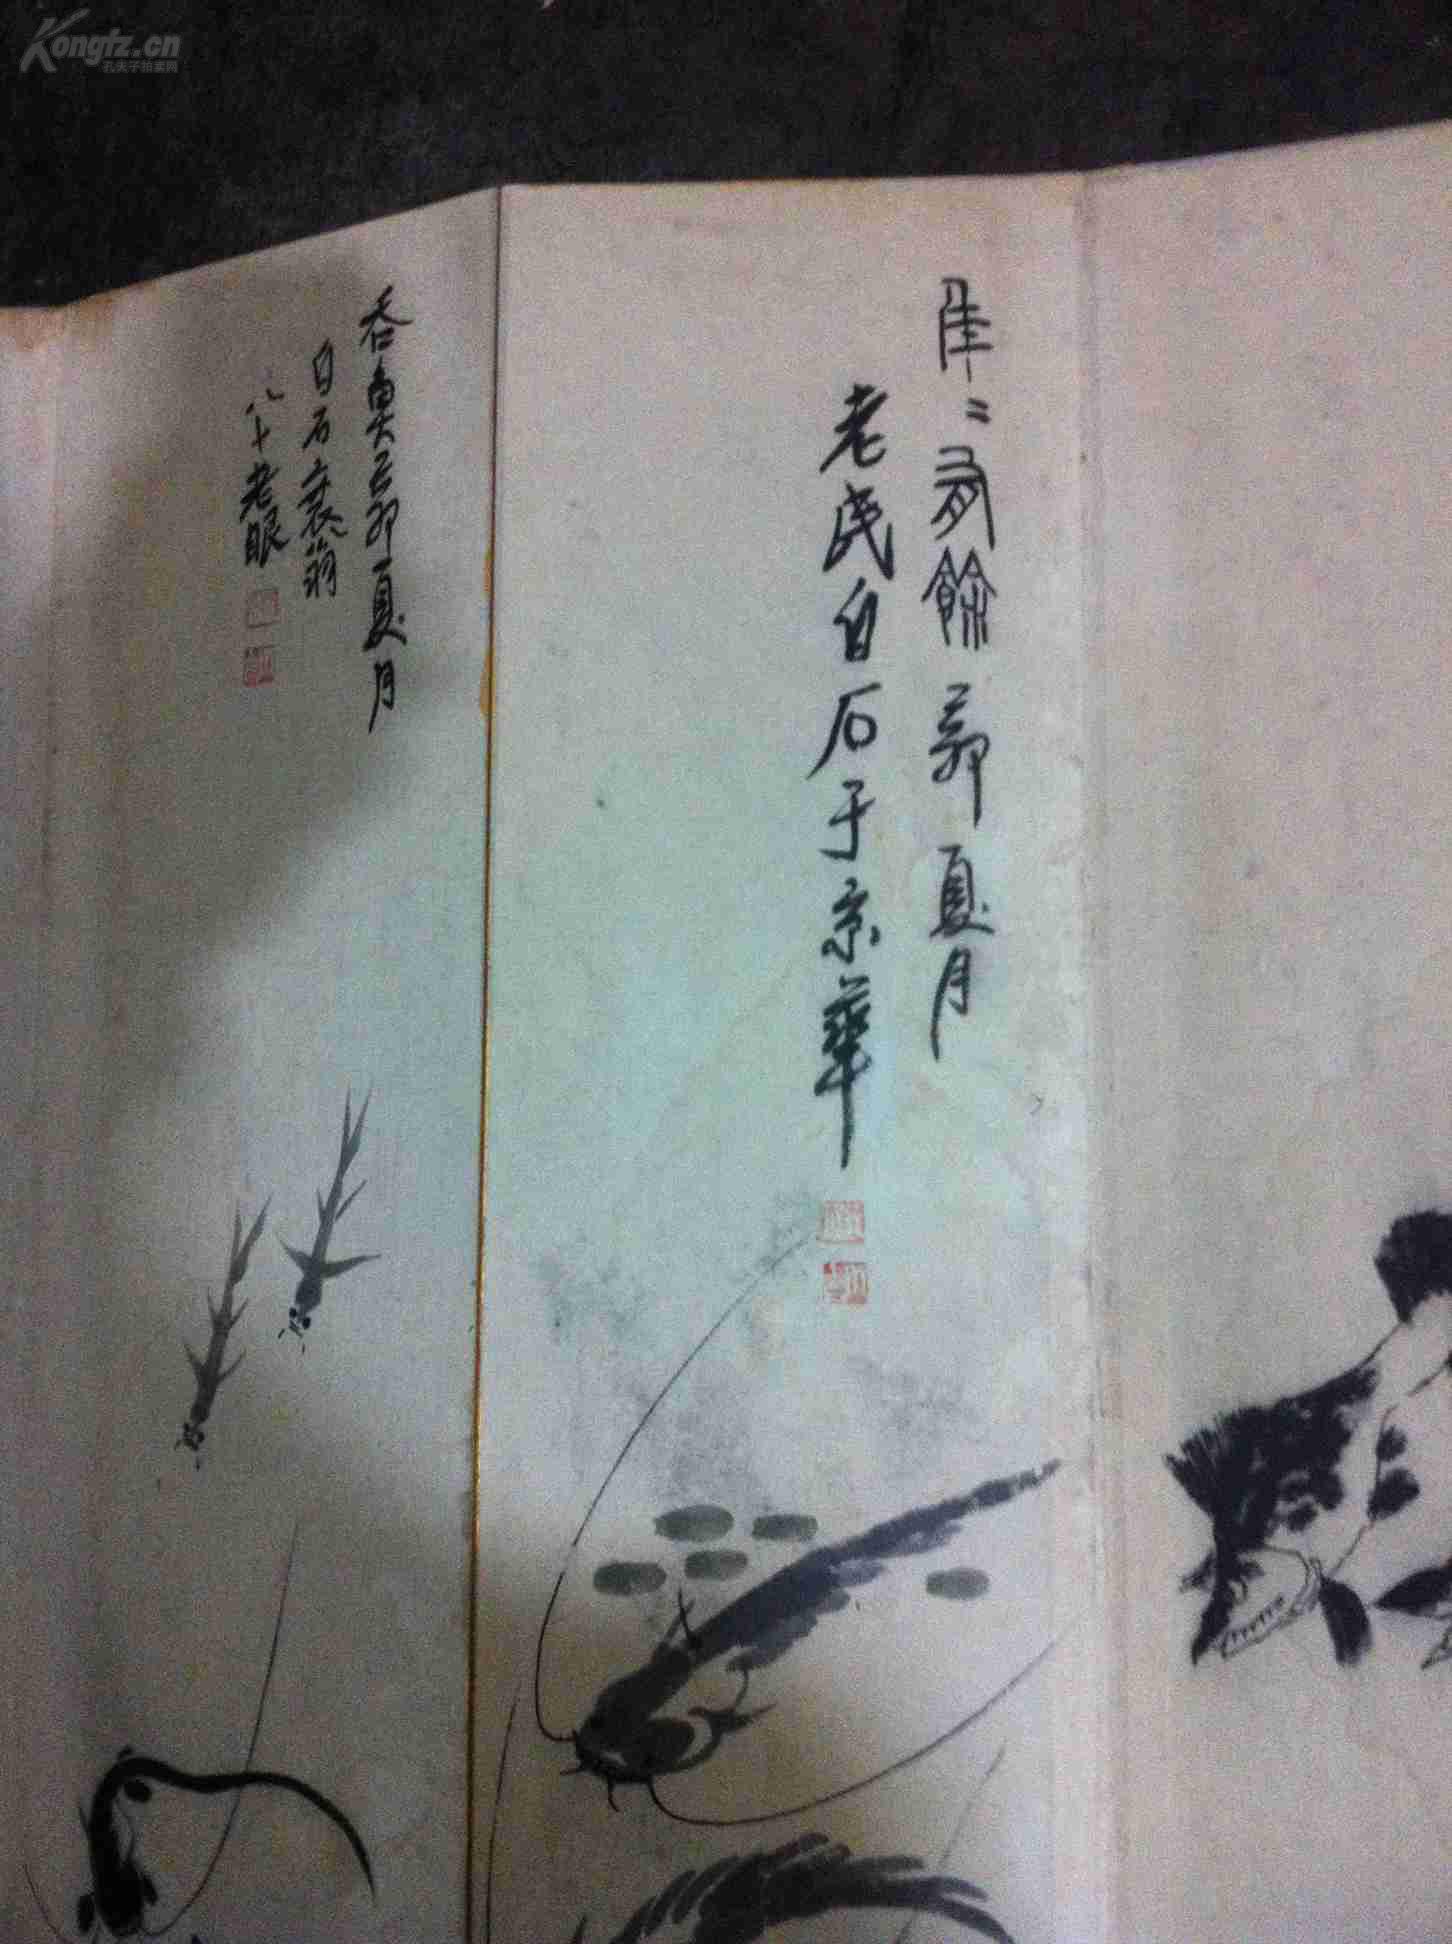 Kongfz.cn
孔夫子拍卖网
年二有餘 己卯夏月
老民白石于京華
吞魚 己卯夏月
白石之衰翁
八十老眼